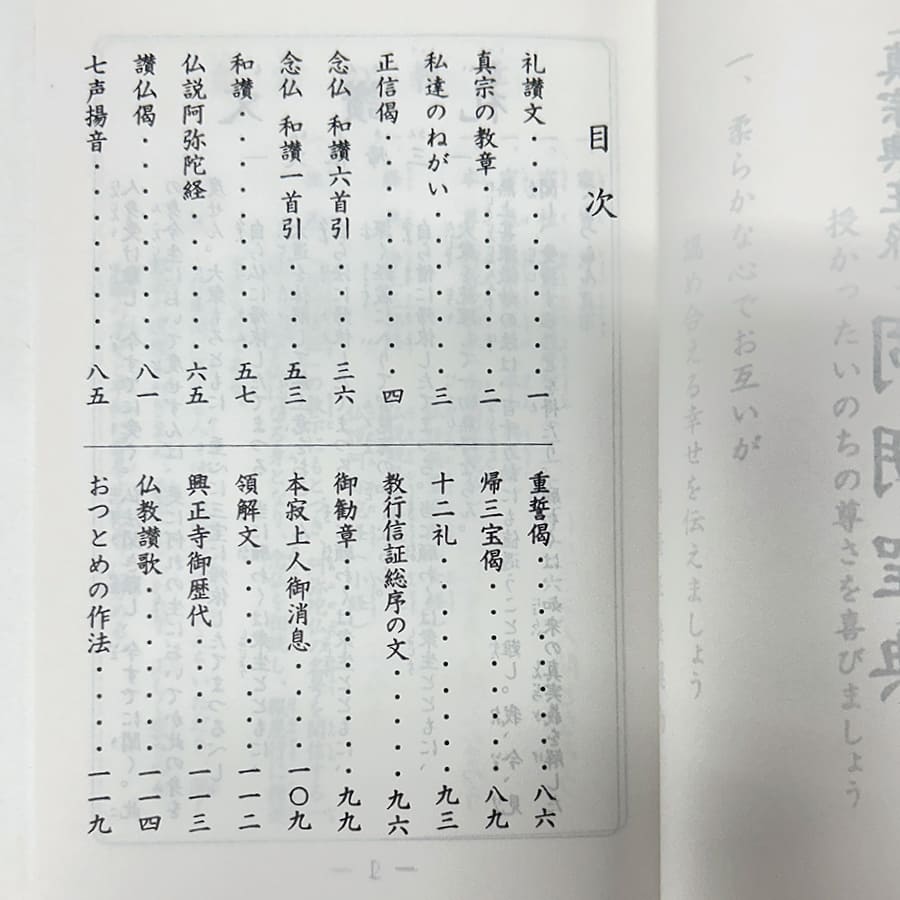 一、柔らかな心でお互いが
温め合える幸せを伝えましょう
授かったいのちの尊さを喜びましょう
目次
礼讃文・・・・・・・・・一
真宗の教章・・・・・・・二
私達のねがい・・・・・・三
正信偈・・・・・・・・・四
念仏 和讃六首引・・・・三六
念仏 和讃一首引・・・・五三
和讃・・・・・・・・・五七
仏説阿弥陀経・・・・・六五
讃仏偈・・・・・・・・八一
七声揚音・・・・・・・八五
重誓偈・・・・・・・・八六
帰三宝偈・・・・・・・八九
十二礼・・・・・・・・九三
教行信証総序の文・・・・九六
御勧章・・・・・・・・九九
本寂上人御消息・・・・一〇九
領解文・・・・・・・・一一二
興正寺御歴代・・・・・一一三
仏教讃歌・・・・・・・一一四
おつとめの作法・・・・一一九